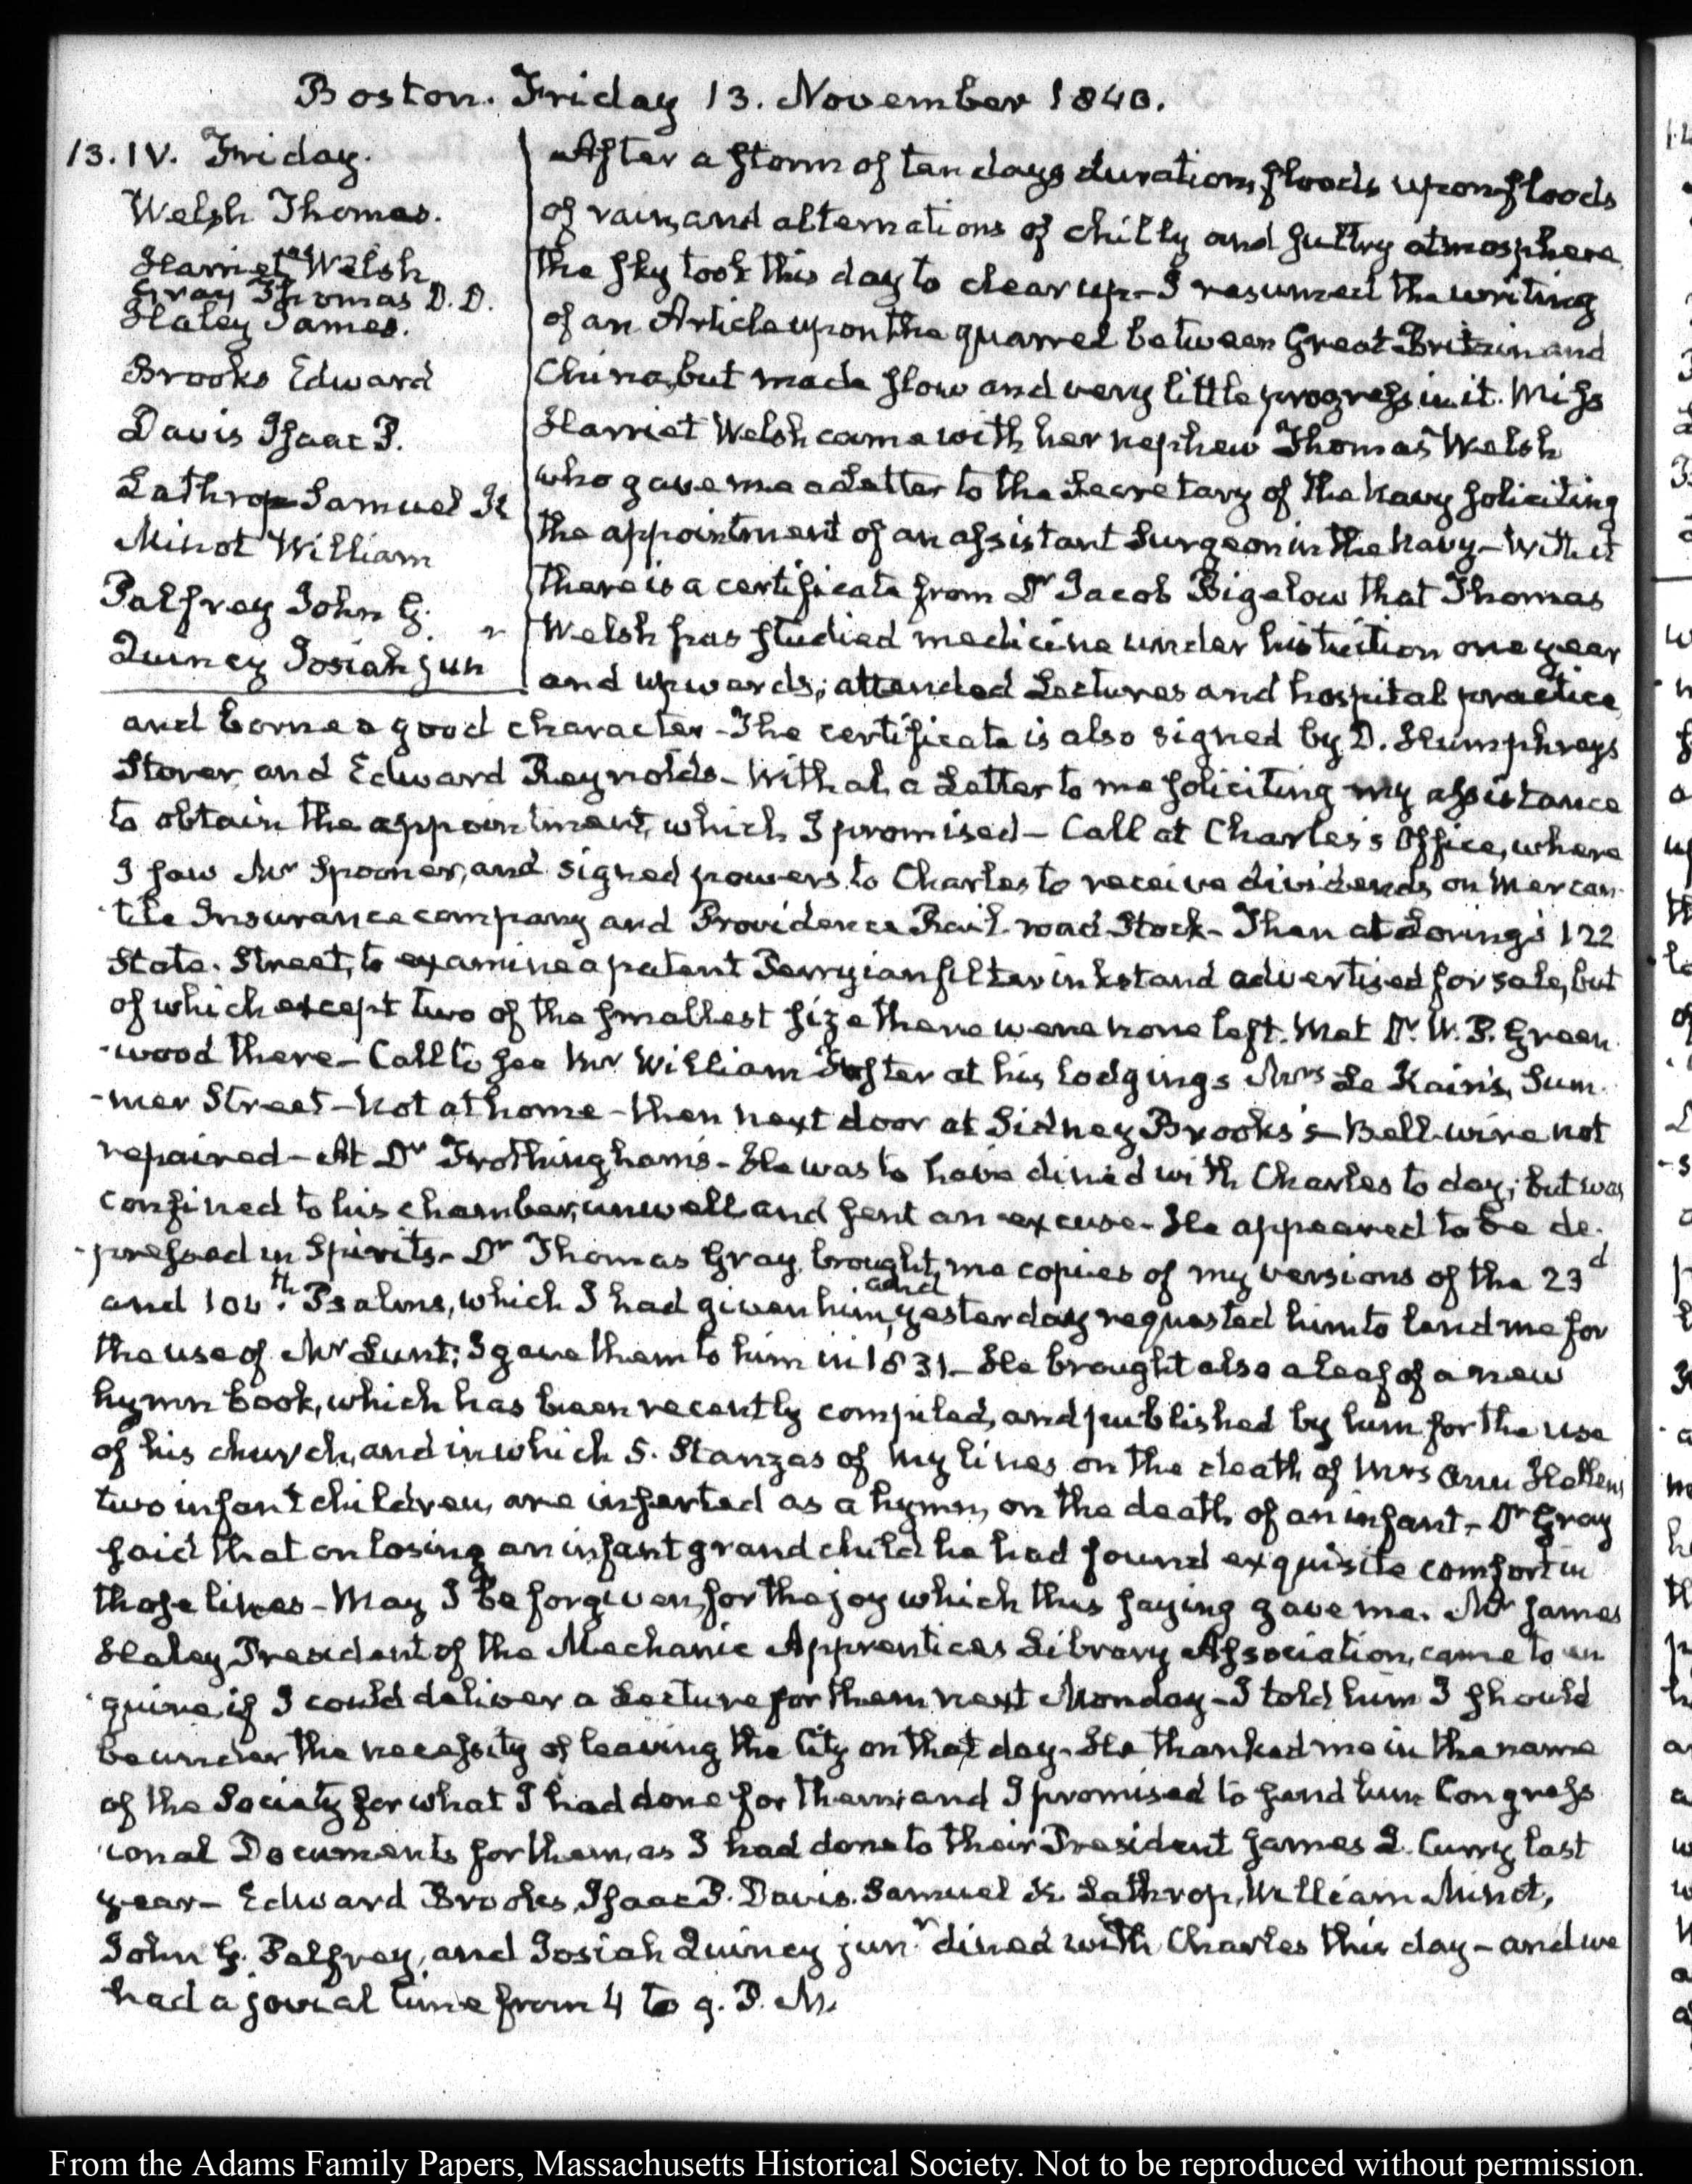 Boston. Friday 13. November 1840.
13. IV. Friday.
Welsh Thomas.
Harriet Welsh
Gray Thomas D.D.
Haley James.
Brooks Edward
Davis Isaac P.
Lathrop Samuel K
Minot William
Palfrey John G.
Quincy Josiah junr
After a storm of ten days duration, floods upon floods
of rain, and alternations of chilly and sultry atmosphere
the sky took this day to clear up – I resumed the writing
of an Article upon the quarrel between Great Britain and
China, but made slow and very little progress in it. Miss
Harriet Welsh came with her nephew Thomas Welsh
who gave me a Letter to the Secretary of the Navy soliciting
the appointment of an assistant Surgeon in the Navy – With it
there is a certificate from Dr Jacob Bigelow that Thomas
Welsh has studied medicine under his tuition one year
and upwards; attended Lectures and hospital practice
and borne a good character – The certificate is also signed by D. Humphreys
Storer, and Edward Reynolds – With al, a Letter to me soliciting my assistance
to obtain the appointment, which I promised – Call at Charles's Office, where
I saw Mr Spooner, and signed powers to Charles to receive dividends on Mercan-
-tile Insurance company and Providence Rail-road Stock – Then at Loring's 122
State Street, to examine a patent Perryian filter inkstand advertised for sale, but
of which except two of the smallest size there were none left. Met Dr. W. P. Green
-wood there – Call to see Mr William Foster at his lodgings Mrs Le Kain's, Sum-
-mer Street – Not at home – then next door at Sidney Brooks's – Bell-wire not
repaired – At Dr Frothingham's – He was to have dined with Charles to day; but was
confined to his chamber, unwell and sent an excuse – He appeared to be de-
-pressed in Spirits – Dr Thomas Gray, brought me copies of my versions of the 23d
and 104th. Psalms, which I had given him, and yesterday requested him to lend me for
the use of Mr Lunt; I gave them to him in 1831 – He brought also a leaf of a new
hymn book, which has been recently compiled, and published by him for the use
of his church, and in which 5. Stanzas of my lines on the death of Mrs Ann Hellen's
two infant children, are inserted as a hymn, on the death of an infant – Dr Gray
said that on losing an infant grandchild he had found exquisite comfort in
those lines – May I be forgiven for the joy which this saying gave me. Mr James
Haley President of the Mechanic Apprentices Library Association, came to en
-quire if I could deliver a Lecture for them next Monday – I told him I should
be under the necessity of leaving the City on that day – He thanked me in the name
of the Society for what I had done for them; and I promised to send him Congress
-ional Documents for them, as I had done to their President James L. Curry last
year – Edward Brooks, Isaac P. Davis. Samuel K. Lathrop, William Minot,
John G. Palfrey, and Josiah Quincy junr dined with Charles this day – and we
had a jovial time from 4 to 9. P. M.
From the Adams Family Papers, Massachusetts Historical Society. Not to be reproduced without permission.